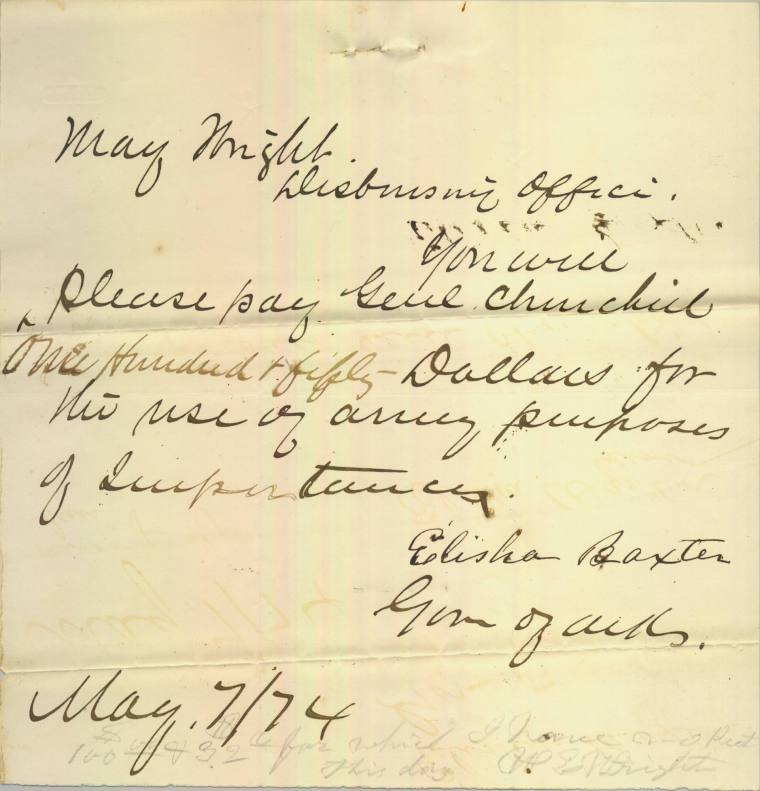 May Wright.
Disbursing Office.
You will
Please pay Genl Churchill
One Hundred & fifty Dollars for
the use of army purposes
of Importance.
Elisha Baxter
Gov of Arks.
May, 7/74
for which I have
this day Wright